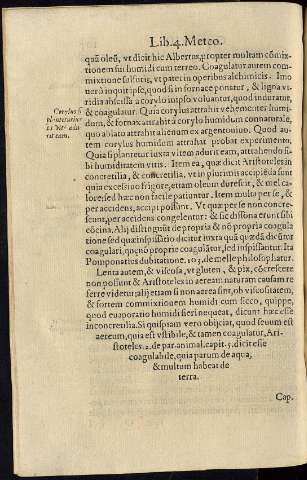 Lib.4. Meteo.
quā oleū, vt dicit hic Albertus, propter multam cōmix-
tionem sui humidi cum terreo. Coagulatur autem com-
mixtione sulfuris, vt patet in operibus alchimicis. Imo
uerū inquit ipse, quod si in fornace ponatur, & ligna vi-
ridia abscissa a corylo imposuantur, quod induratur,
& coagulatur. Quia corylus attrahit vehementer humi-
dum, & fornax attrahit à corylo humidum connaturale,
quo abiato attrahit alienum ex argento viuo. Quod au-
tem corylus humidum attrahat probat experimento.
Quia si plantetur iuxta vitem adurit eam, attrahendo si-
bi humiditatem vitis. Item ea, quæ dicit Aristoteles in
concretilia, & concretilia, vt in plurimis accipiēda sunt
quia excelsiuo frigore, etiam oleum durescit, & mel ca-
lore; sed hæc non facile patiuntur. Item multa per se, &
per accidens, accipi possunt. Vt quæ per se non concre-
scunt, per accidens congelentur: & sic dissona erunt sibi
cōcina. Alij distinguūt de propria & nō propria coagula
tione sed quæ inspissatio dicitur iuxta quā quædā dicūtur
coagulari, quę nō proprie coagulātur, sed inspissantur. Ita
Pomponatius dubitatione. 103. de melle philosophatur.
Lenta autem, & viscosa, vt gluten, & pix, cōcrescere
non possunt & Aristoteles in aeream naturam causam re
ferre videtur: alij etiam si non aerea sint, ob viscositatem,
& fortem commixtionem humidi cum sicco, quippe,
quod euaporatio humidi fieri nequeat, dicunt hæc esse
inconcretilia. Si quispiam vero obijciat, quod seuum est
aereum, quia est vstibile, & tamen coagulatur, Ari-
stoteles. 2. de par. animal. capit. 5. dicit esse
coagulabile, quia parum de aqua,
& multum habeat de
terra.
Corylus
vitem
Cap.